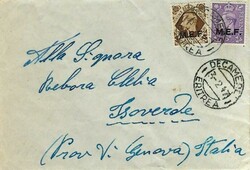 M.E.F. M.E.F.
DECAMERE
ERITREA
Alla Signora
Rebora Clelia
Isoverde
(Prov. di Genova) Italia